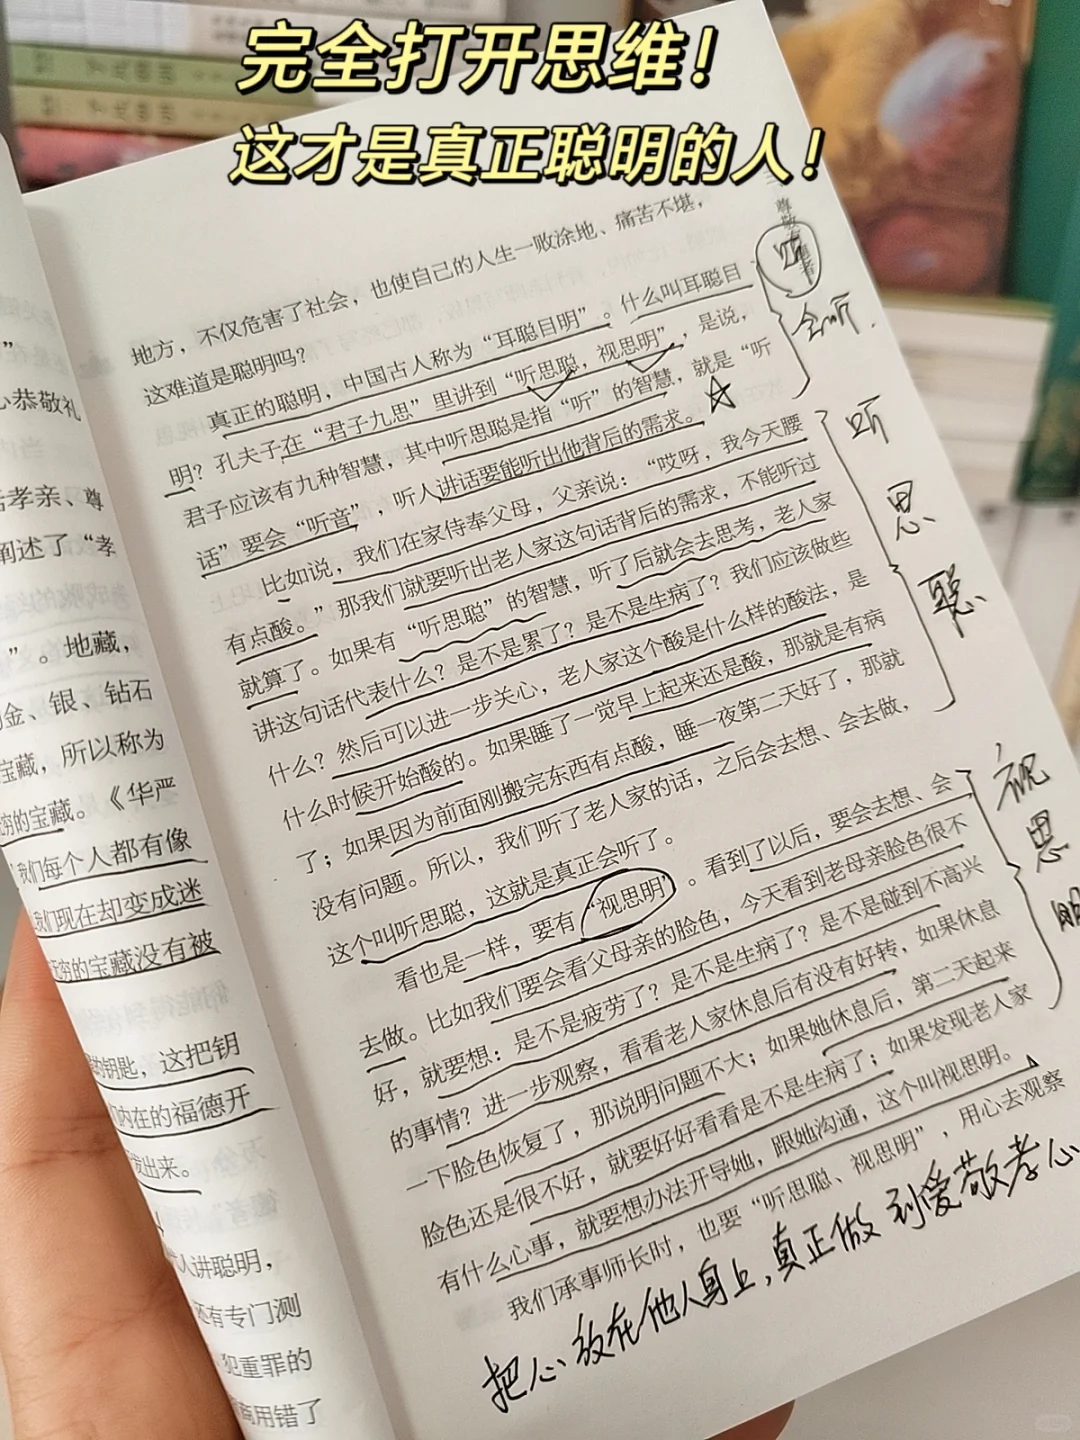 完全打开思维！
这才是真正聪明的人！
心恭敬礼
括孝亲、尊
阐述了“孝
”。地藏，
金、银、钻石
宝藏，所以称为
穷的宝藏。《华严
我们每个人都有像
我们现在却变成迷
无穷的宝藏没有被
的钥匙，这把钥
内在的福德开
发出来。
人讲聪明，
还有专门测
犯重罪的
商用错了
地方，不仅危害了社会，也使自己的人生一败涂地、痛苦不堪，
这难道是聪明吗？
真正的聪明，中国古人称为“耳聪目明”。什么叫耳聪目
明？孔夫子在“君子九思”里讲到“听思聪，视思明”，是说，
君子应该有九种智慧，其中听思聪是指“听”的智慧，就是“听
话”要会“听音”，听人讲话要能听出他背后的需求。
比如说，我们在家侍奉父母，父亲说：“哎呀，我今天腰
有点酸。”那我们就要听出老人家这句话背后的需求，不能听过
就算了。如果有“听思聪”的智慧，听了后就会去思考，老人家
讲这句话代表什么？是不是累了？是不是生病了？我们应该做些
什么？然后可以进一步关心，老人家这个酸是什么样的酸法，是
什么时候开始酸的。如果睡了一觉早上起来还是酸，那就是有病
了；如果因为前面刚搬完东西有点酸，睡一夜第二天好了，那就
没有问题。所以，我们听了老人家的话，之后会去想、会去做，
这个叫听思聪，这就是真正会听了。
看也是一样，要有“视思明”。看到了以后，要会去想、会
去做。比如我们要会看父母亲的脸色，今天看到老母亲脸色很不
好，就要想：是不是疲劳了？是不是生病了？是不是碰到不高兴
的事情？进一步观察，看看老人家休息后有没有好转，如果休息
一下脸色恢复了，那说明问题不大；如果她休息后，第二天起来
脸色还是很不好，就要好好看看是不是生病了；如果发现老人家
有什么心事，就要想办法开导她，跟她沟通，这个叫视思明。
我们承事师长时，也要“听思聪、视思明”，用心去观察
会听.
听思聪
视思明
把心放在他人身上，真正做到爱敬孝心